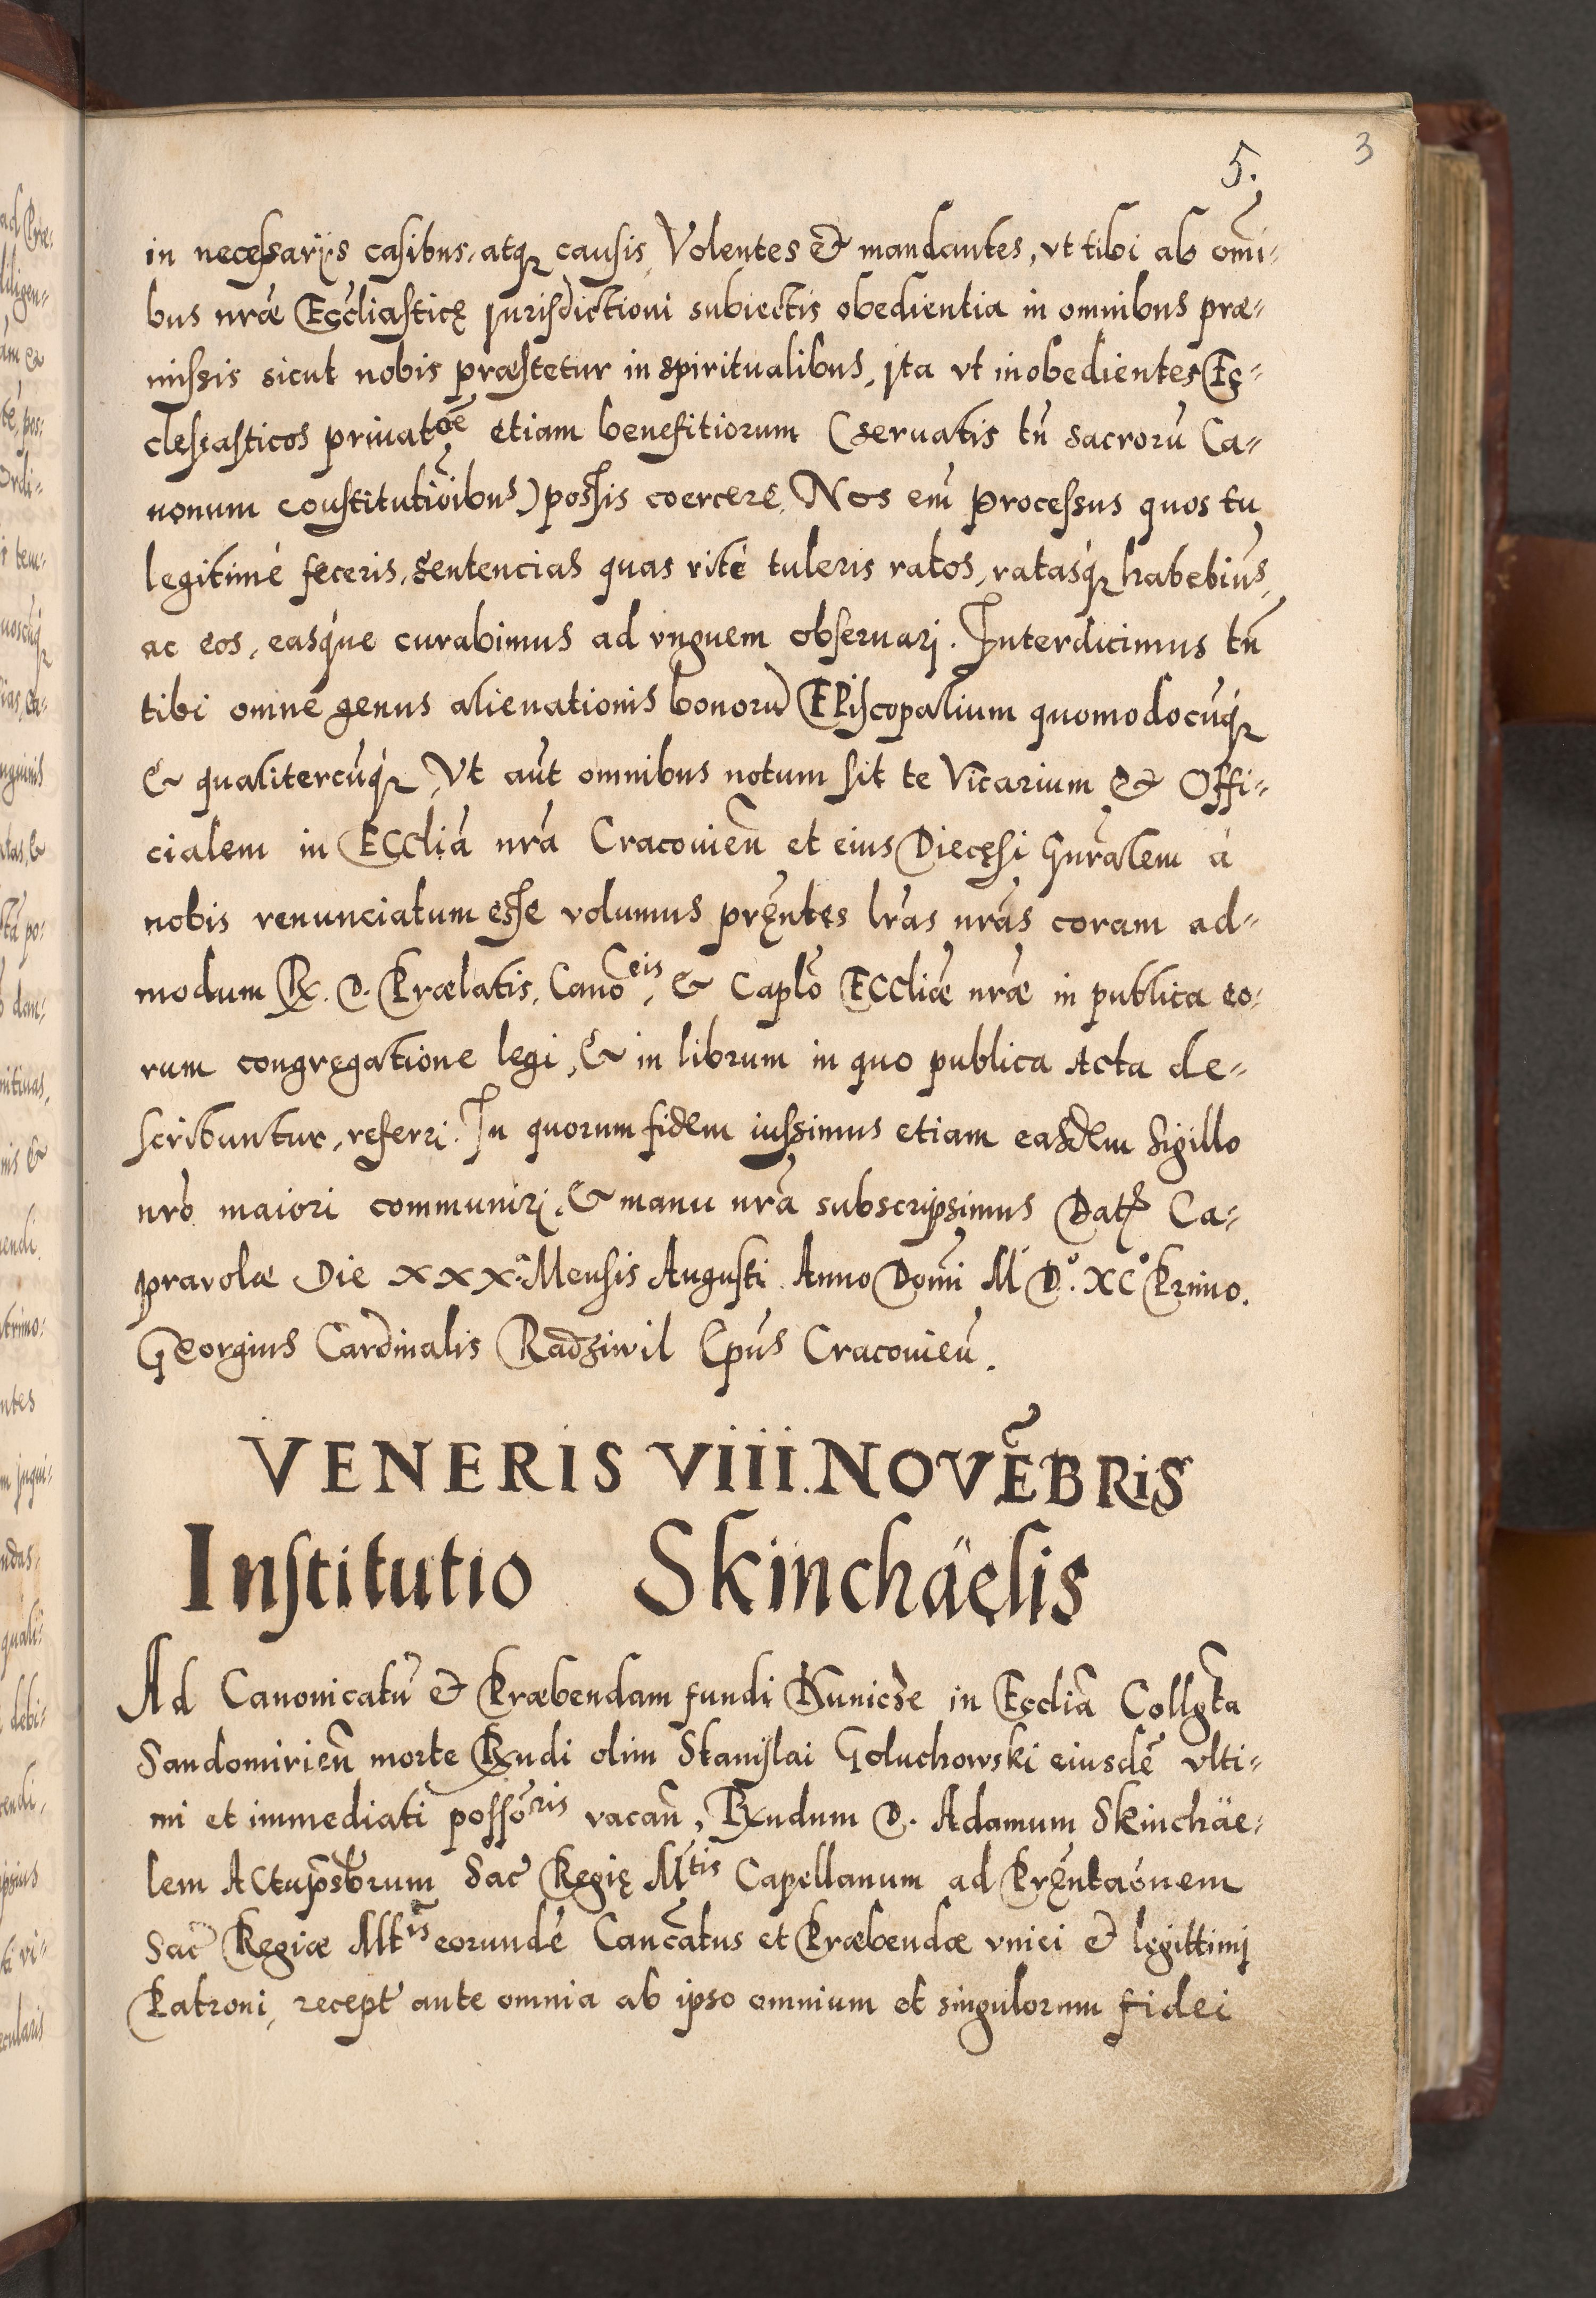 3
5.
in necessarijs casibus, atq causis, Volentes & mandantes, vt tibi ab omĩ-
bus nrǽ Eccl̃iasticę jurisdictioni subiectis obedientia in omnibus præ-
missis sicut nobis præstetur in spiritualibus, jta vt inobedientes Ec-
clesiasticos priuatõe etiam benefitiorum (seruatis tñ sacrorũ Ca-
nonum coustitutiõibus) possis coercere, Nos em̃ processus quos tu
legitimè feceris, sentencias quas ritè tuleris ratos, ratasq́ habebim̃s,
ac eos, easq́ue curabimus ad vnguem obseruarj. Interdicimus tñ
tibi omne genus alienationis bonorũ Episcopalium quomodocũq
& qualitercũq́, Vt aũt omnibus notum sit te Vicarium & Offi-
cialem in Eccl̃iã nrã Cracouieñ et eius Diecęsi Gnralem à
nobis renunciatum esse volumus pręntes lr̃as nrãs coram ad-
modum Rx. D. Prælatis, Canoceis, & Caplõ Eccl̃iæ nrǽ in publica eo-
rum congregatione legi, & in librum in quo publica Acta de-
scribuntur, referri. In quorum fidem iussimus etiam easdem sigillo
nrõ maiori communirj, & manu nrã subscripsimus Dat Ca-
pravolæ Die XXX.ª Mensis Augusti Anno Domĩ M D°. XC° Primo.
Georgius Cardinalis Radziwil Epũs Cracouieñ.
VENERIS VIIII. NOVẼBRIS
Institutio Skinchäelis
Ad Canonicatũ & Præbendam fundi Kunicze in Eccliã Collgta
Sandomirieñ morte Rxndi olim Stanislai Goluchowski eiusdẽ vlti-
mi et immediati possõris vacañ, Rxndum D. Adamum Skinchäe-
lem Sac̃ Regię Mtis Capellanum ad Pręntaõnem
Sac̃ Regiæ Mtis eorundẽ Canc̃atus et Præbendæ vnici & legittimj
Patroni, recept ante omnia ab ipso omnium et singulorum fidei